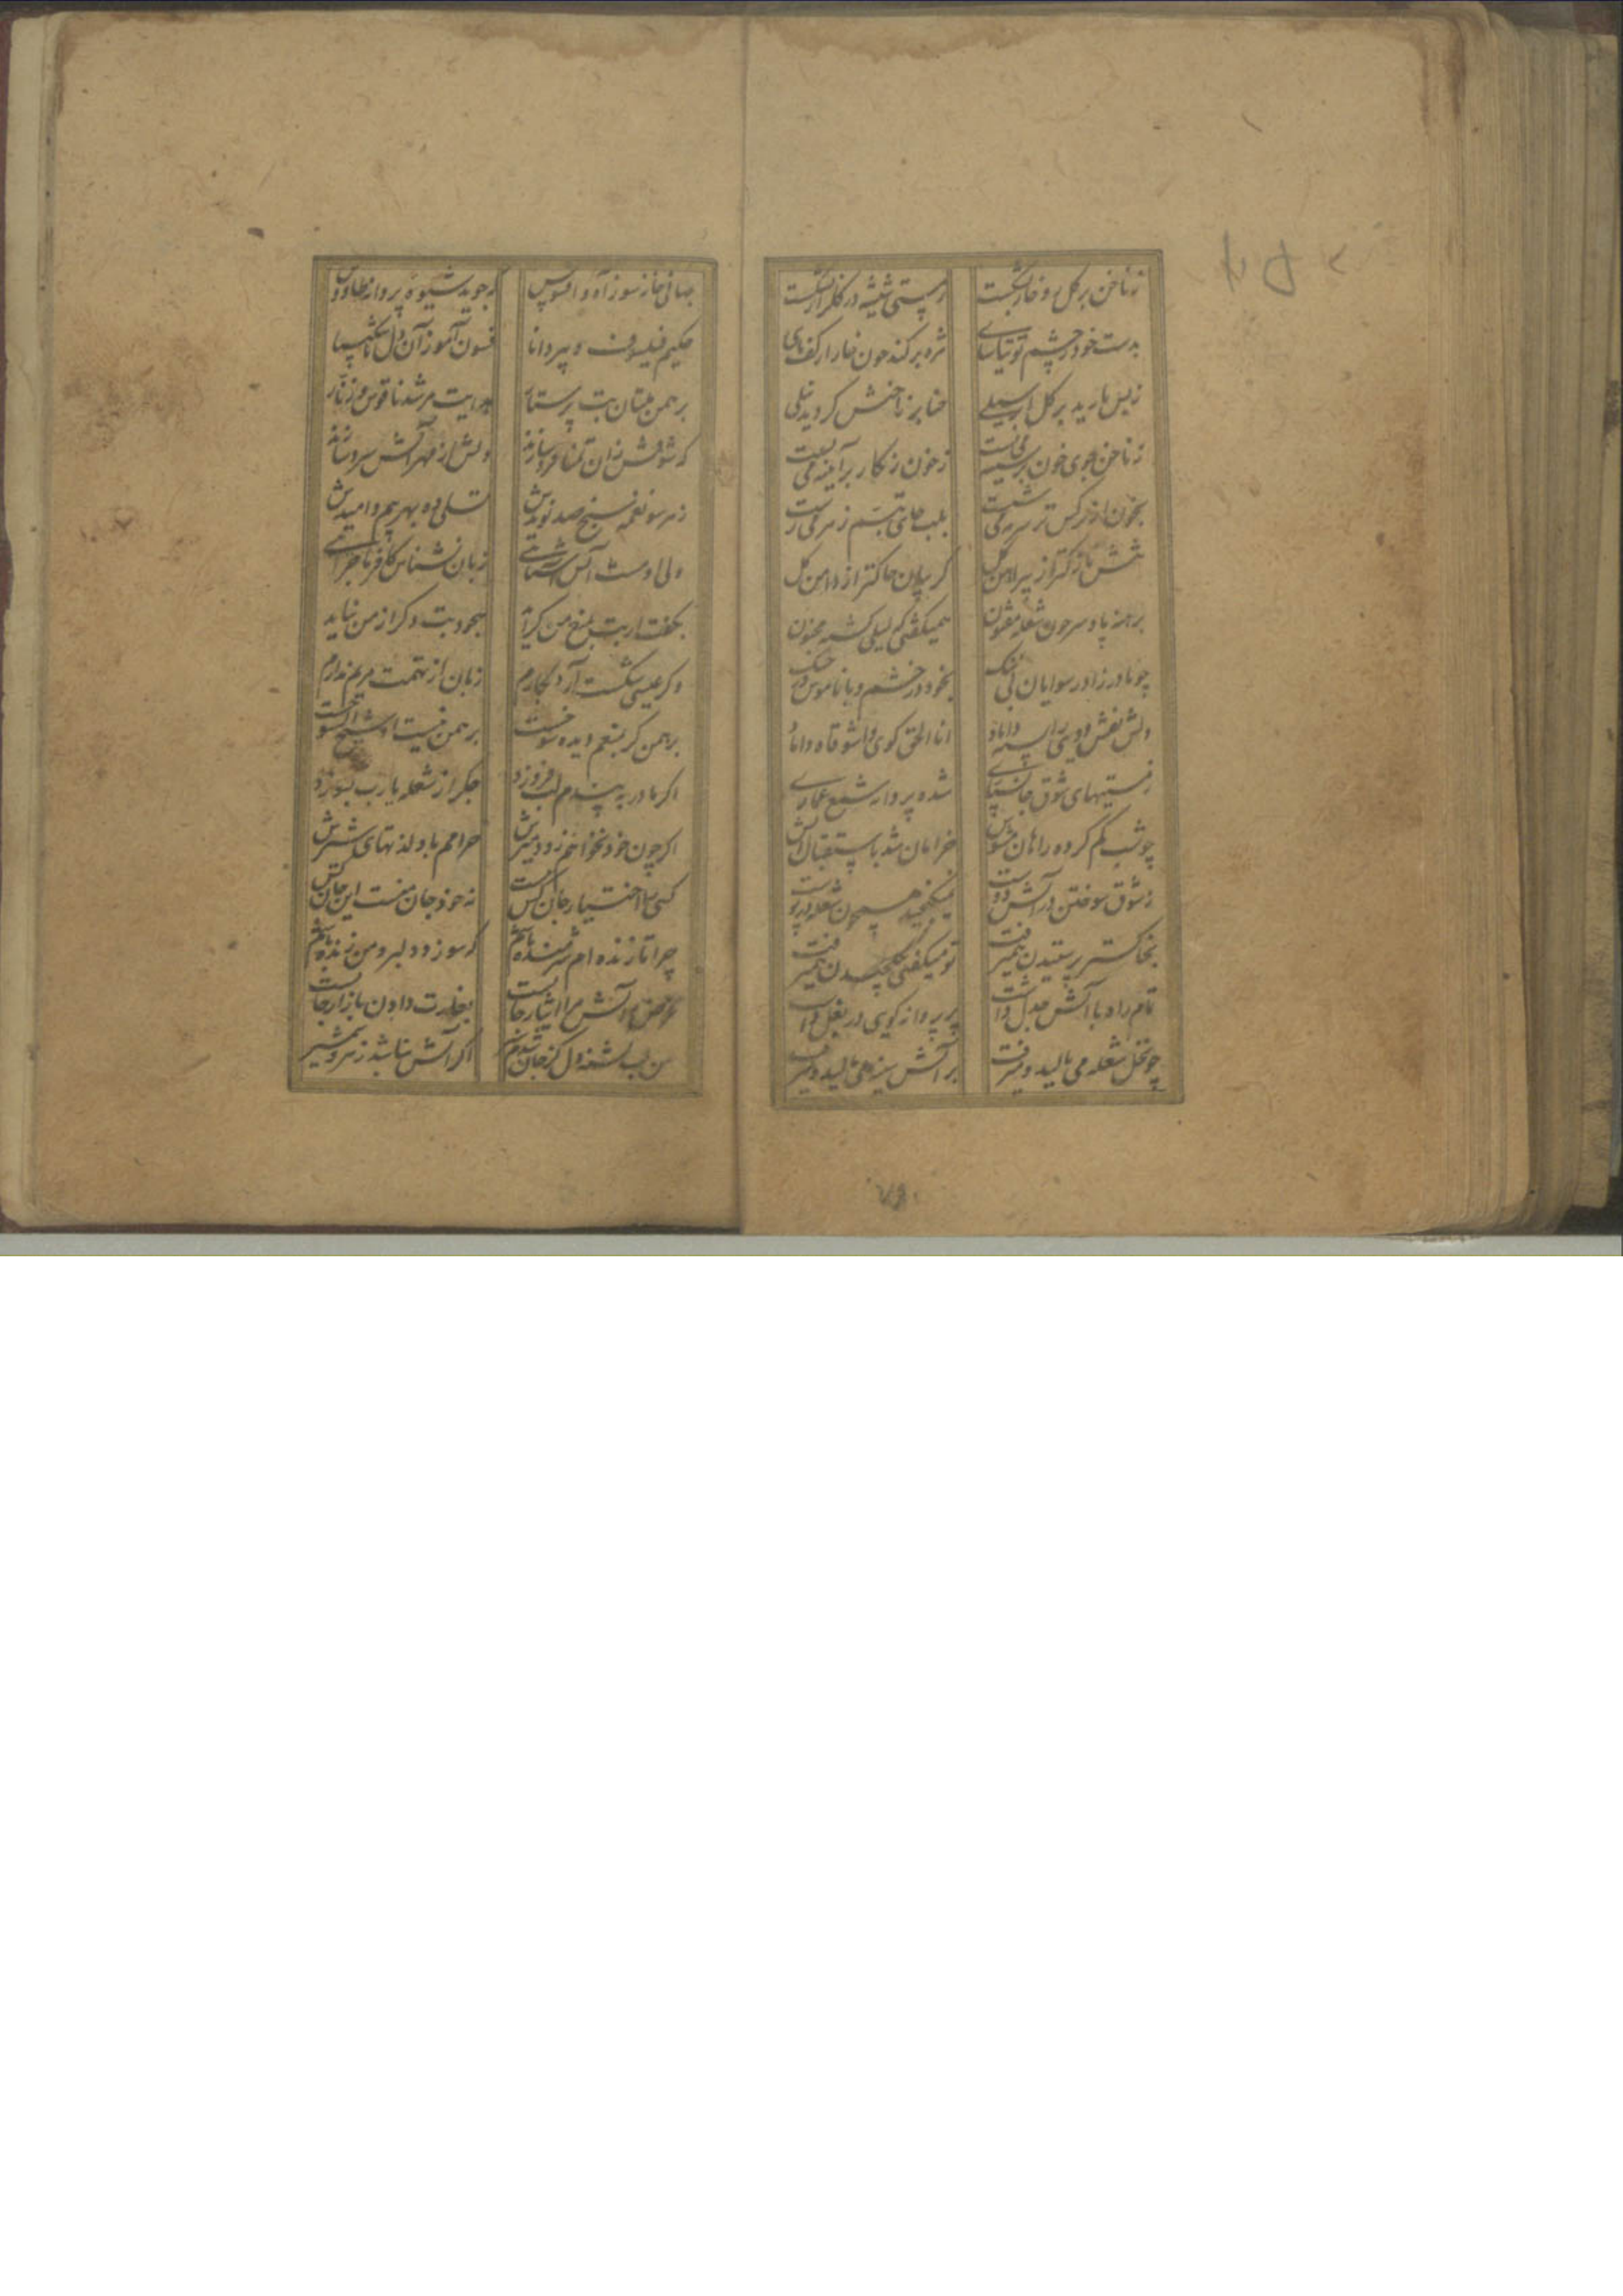 زناخن بر کل رو خار بشکست
ز مستی شیشه در کلزار بشکست
بدست خود ز چشم توتیاسای
مژه برکند چون خار از کف پای
زبس بارید بر کل ابر سیلی
حنا بر ناخنش کردید نیلی
زناخن جوی خون بر سینه می بست
ز خون زنکار بر آیینه می بست
بخون از نرکس تر سرمه می شست
بلب جای تبسم زهر می رست
تنش نازکتر از پیراهن کل
کریبان چاکتر از دامن کل
برهنه پا و سر چون شعله مفتون
همیکفتی که لیلی کشته مجنون
چو مادرزاد رسوایان بی ننک
بخود در خشم و با ناموس در جنک
دلش نقش دویی را سینه داده
انا الحق کوی واشوقاه داده
ز مستیهای شوق جانسپاری
شده پروانه شمع عماری
چو شب کم کرده راهان مشوش
خرامان شد باستقبال آتش
ز شوق سوختن در آتش دوست
نمیکنجید همچون شعله در پوست
بخاکستر پرستیدن همیرفت
تو میکفتی بکلچیدن همیرفت
تمام راه با آتش جدل داشت
پر پروانه کویی در بغل داشت
چو نخل شعله می بالید و میرفت
بر آتش سینه می مالید و میرفت
جهانی خانه سوز از آه و افسوس
که جوید شیوه پروانه طاووس
حکیم فیلسوف و پیر دانا
فسون آموز آن دل ناشکیبا
برهمن بتان بت پرستار
هدایت مرشد ناقوس و زنار
که شوقش زان تمنا فرو سازند
دلش از مهر آتش سرد سازند
ز هر سو نغمه سنج صد نویدش
تسلی ده بهر بیم و امیدش
ولی او مست آتش آشنایی
زبان نشناس کافر ماجرایی
بکفت ار بت بمنع من کراید
سجود بت دکر از من نیاید
وکر عیسی شکست آرد بکارم
زبان از تهمت مریم ندارم
برهمن کر بمنعم دیده سوخت
برهمن نیست
اکر مادر به پندم لب فروزد
جکر از شعله یارب بسوزد
اکر چون خود نخواهم زود میرش
حرامم باد لذتهای شیرش
کسی را اختیار جان کس نیست
نه خود جان منست این جان
چرا تا زنده ام شرمنده باشم
که سوزد دلبر و من زنده باشم
غرض آتش مرا ایثار جانست
بغارت دادن بازار جانست
من لب تشنه دل کز جان شدم سیر
اکر آتش نباشد زهر و شمشیر